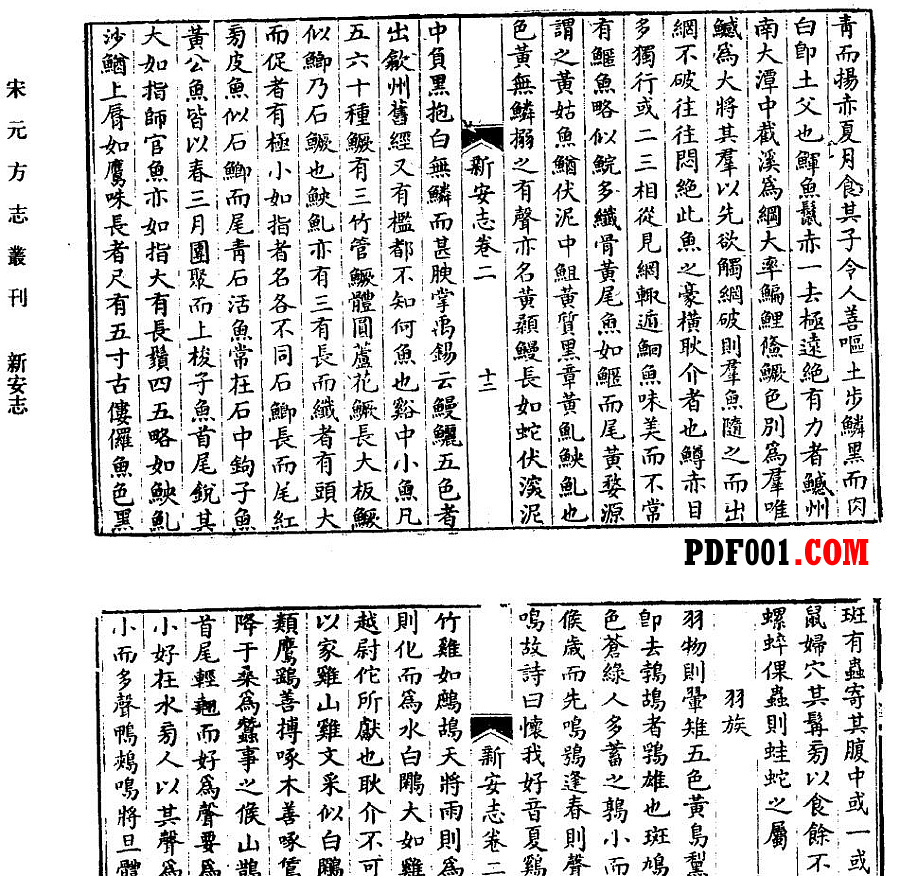 宋元方志叢刊 新安志
青而揚亦夏月食其子令人善嘔土步鱗黑而肉
白即土父也鯶魚鬣赤一去極遠絕有力者鰔州
南大潭中截溪為網大率鯿鯉鱠鱖色別為羣唯
鰔為大將其羣以先欲觸網破則羣魚隨之而出
網不破往往悶絕此魚之豪橫耿介者也鱒赤目
多獨行或二三相從見網輒遁鮰魚味美而不常
有鰋魚略似鯇多纖骨黃尾魚如鰋而尾黃婺源
謂之黃姑魚鰌伏泥中鉏黃質黑章黃魟鉠魟也
色黃無鱗搦之有聲亦名黃顙鰻長如蛇伏深泥
新安志卷二
十二
中負黑抱白無鱗而甚腴掌禹錫云鰻鱺五色者
出歙州舊經又有檻都不知何魚也谿中小魚凡
五六十種鱖有三竹管鱖體圓蘆花鱖長大板鱖
似鯽乃石鱖也鉠魟亦有三有長而纖者有頭大
而促者有極小如指者名各不同石鯽長而尾紅
䓑皮魚似石鯽而尾青石活魚常在石中鉤子魚
黃公魚皆以春三月團聚而上梭子魚首尾銳其
大如指師官魚亦如指大有長鬚四五略如鉠魟
沙鰌上脣如鷹咮長者尺有五寸古僂儸魚色黑
PDF001.COM
斑有蟲寄其腹中或一或
鼠婦穴其髯旁以食餘不
螺蜶倮蟲則蛙蛇之屬
羽族
羽物則翬雉五色黃鳥
即去鶉鴣者鶚雄也斑鳩
色蒼綠人多蓄之鶉小而
候歲而先鳴鶚逢春則聲
鳴故詩曰懷我好音夏鷄
新安志卷二
竹雞如鷓鴣天將雨則為
則化而為水白鷳大如雞
越尉佗所獻也耿介不可
以家雞山雞文采似白鷳
類鷹鷂善搏啄木善啄
降于桑為蠶事之候山鵲
首尾輕翹而好為聲要為
小好在水旁人以其聲為
小而多聲鴨鵊鳴將旦體